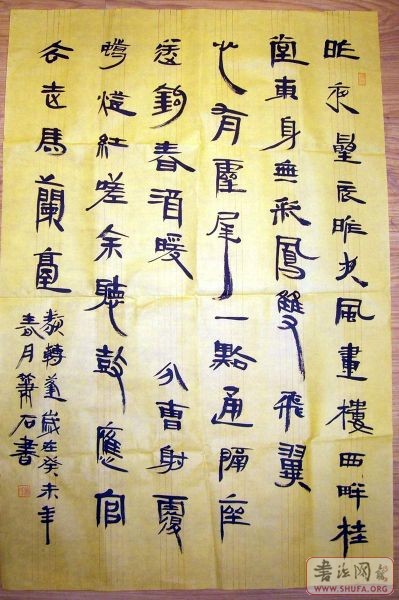 昨夜星辰昨夜風畫樓西畔桂
堂東身無彩鳳雙飛翼
心有靈犀一點通隔座
送鉤春酒暖 分曹射覆
蠟燈紅嗟余聽鼓應官
去走馬蘭臺
類轉蓬歲在癸未年
春月簫石書
書法网
WWW.SHUFA.ORG